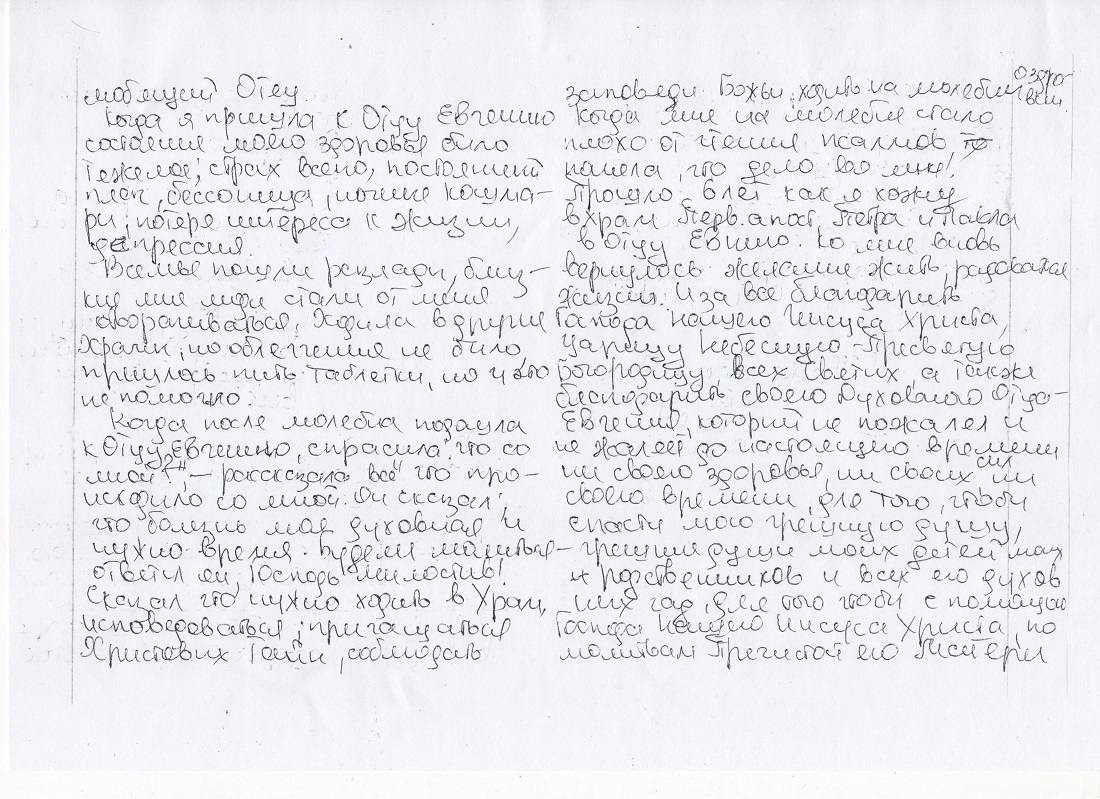 любящий Отец.
Когда я пришла к Отцу Евгению
состояния моего здоровья было
тежелое; страх всего, постоянний
плач, бессоница, ночние кошма-
ри, потеря интереса к жизни,
депрессия.
В семье пошли разлади, близ-
кие мне люди стали от меня
отворачиваться, Ходила в другие
Храми, но облегчения не било,
пришлось пить таблетки, но и это
не помогло.
Когда после молебна подошла
к Отцу Евгению, спрасила „что со
мной?" – рассказала всё что про-
исходило со мной. Он сказал,
что болезнь моя духовная и
нужно время. Будем молиться –
ответил он, Господь милостив!
Сказал что нужно ходить в Храм,
исповедоваться, причащаться
Христових Таин, соблюдать
заповеди Божьи, ходить на молебни
о здра-
вии.
Когда мне на молебне стало
плохо от чтения псалмов, то
поняла, что дело во мне!
Прошло 6 лет как я хожу
в храм Перв. апост. Петра и Павла
в Отцу Евгению. Ко мне вновь
вернулось желание жить, радоваться
жизни. И за все благодарить
Господа нашего Иисуса Христа,
Царицу Небесную – Пресвятую
Богородицу, всех святих, а также
благодарить своего Духовного Отца –
Евгения, который не пожалел и
не жалеет до настоящего времени
ни своего здоровья, ни своих сил ни
своего времени, для того, чтоби
спасти мою грешную душу,
грешние души моих детей моих
и родственников и всех его духов
них чад, для того чтоби с помощью
Господа нашего Иисуса Христа, по
молитвам Пречистой его Матери